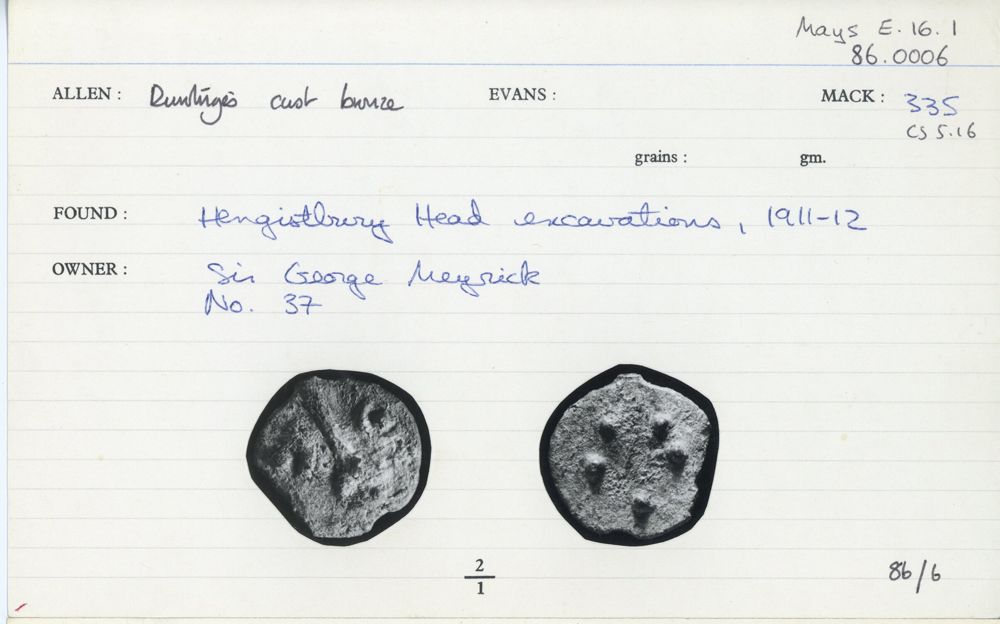 Mays E.16.1
86.0006
ALLEN: Durotriges cast bronze EVANS: MACK: 335
CS 5.16
grains: gm.
FOUND: Hengistbury Head excavations, 1911-12
OWNER: Sir George Meyrick
No. 37
2
1
86/6